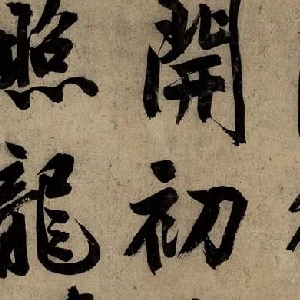 開初
照龍